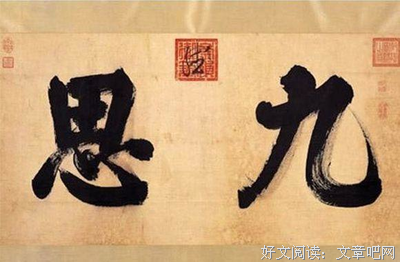 九思
好文阅读：文章吧网